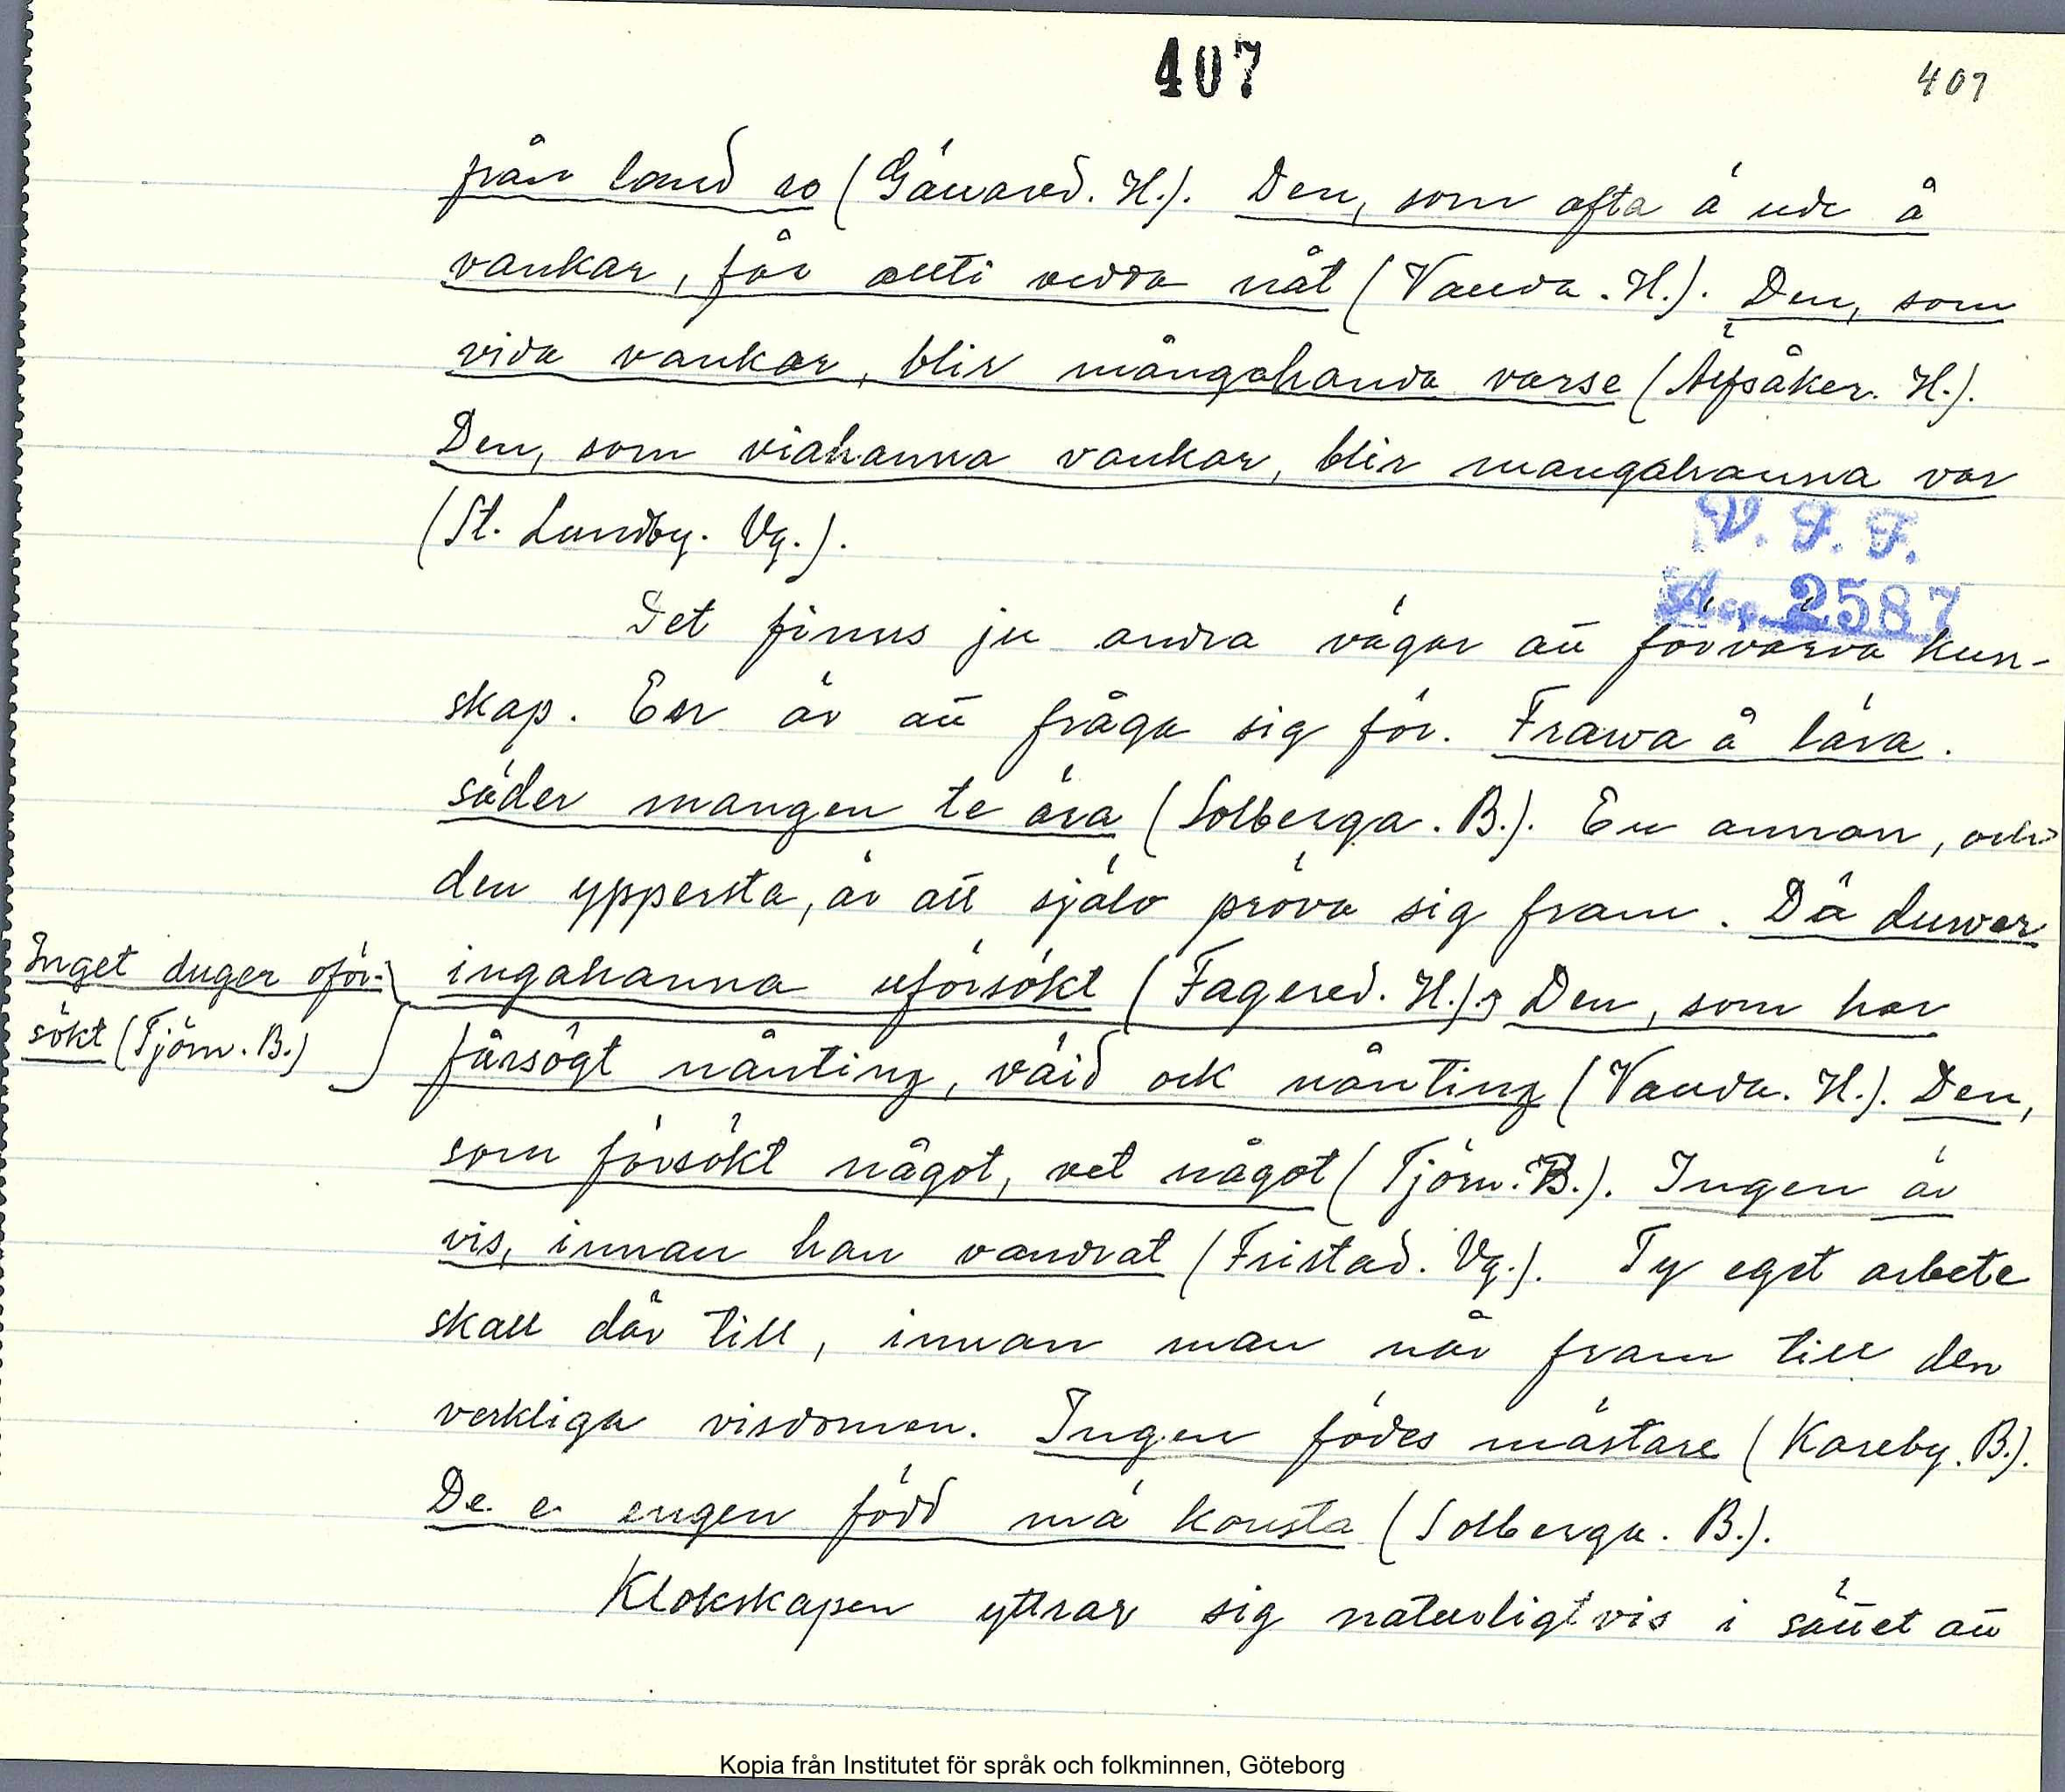 407
407
från land so (Gällared. H.). Den, som ofta ä ude å
vankar, får allti vedda nåt (Vallda. H.). Den, som
vida vankar, blir mångahanda varse (Älfsåker. H.).
Den, som viahanna vankar, blir mangahanna var
(St. Lundby. Vg.).
V. F. F.
Acc. 2587
Det finns ju andra vägar att förvärva kun-
skap. En är att fråga sig för. Frawa å lära.
säder mangen te ära (Solberga. B.). En annan, och
den yppersta, är att själv pröva sig fram. Dä duwer
Inget duger oför-
sökt (Tjörn. B.)
ingahanna uförsökt (Fagered. H.) Den, som har
fårsögt nånting, väid ock nånting (Vallda. H.). Den,
som försökt något, vet något (Tjörn. B.). Ingen är
vis, innan han vandrat (Fristad. Vg.). Ty eget arbete
skall där till, innan man når fram till den
verkliga visdomen. Ingen födes mästare (Kareby. B.).
De e engen född mä konsta (Solberga. B.).
Klokskapen yttrar sig naturligtvis i sättet att
Kopia från Institutet för språk och folkminnen, Göteborg